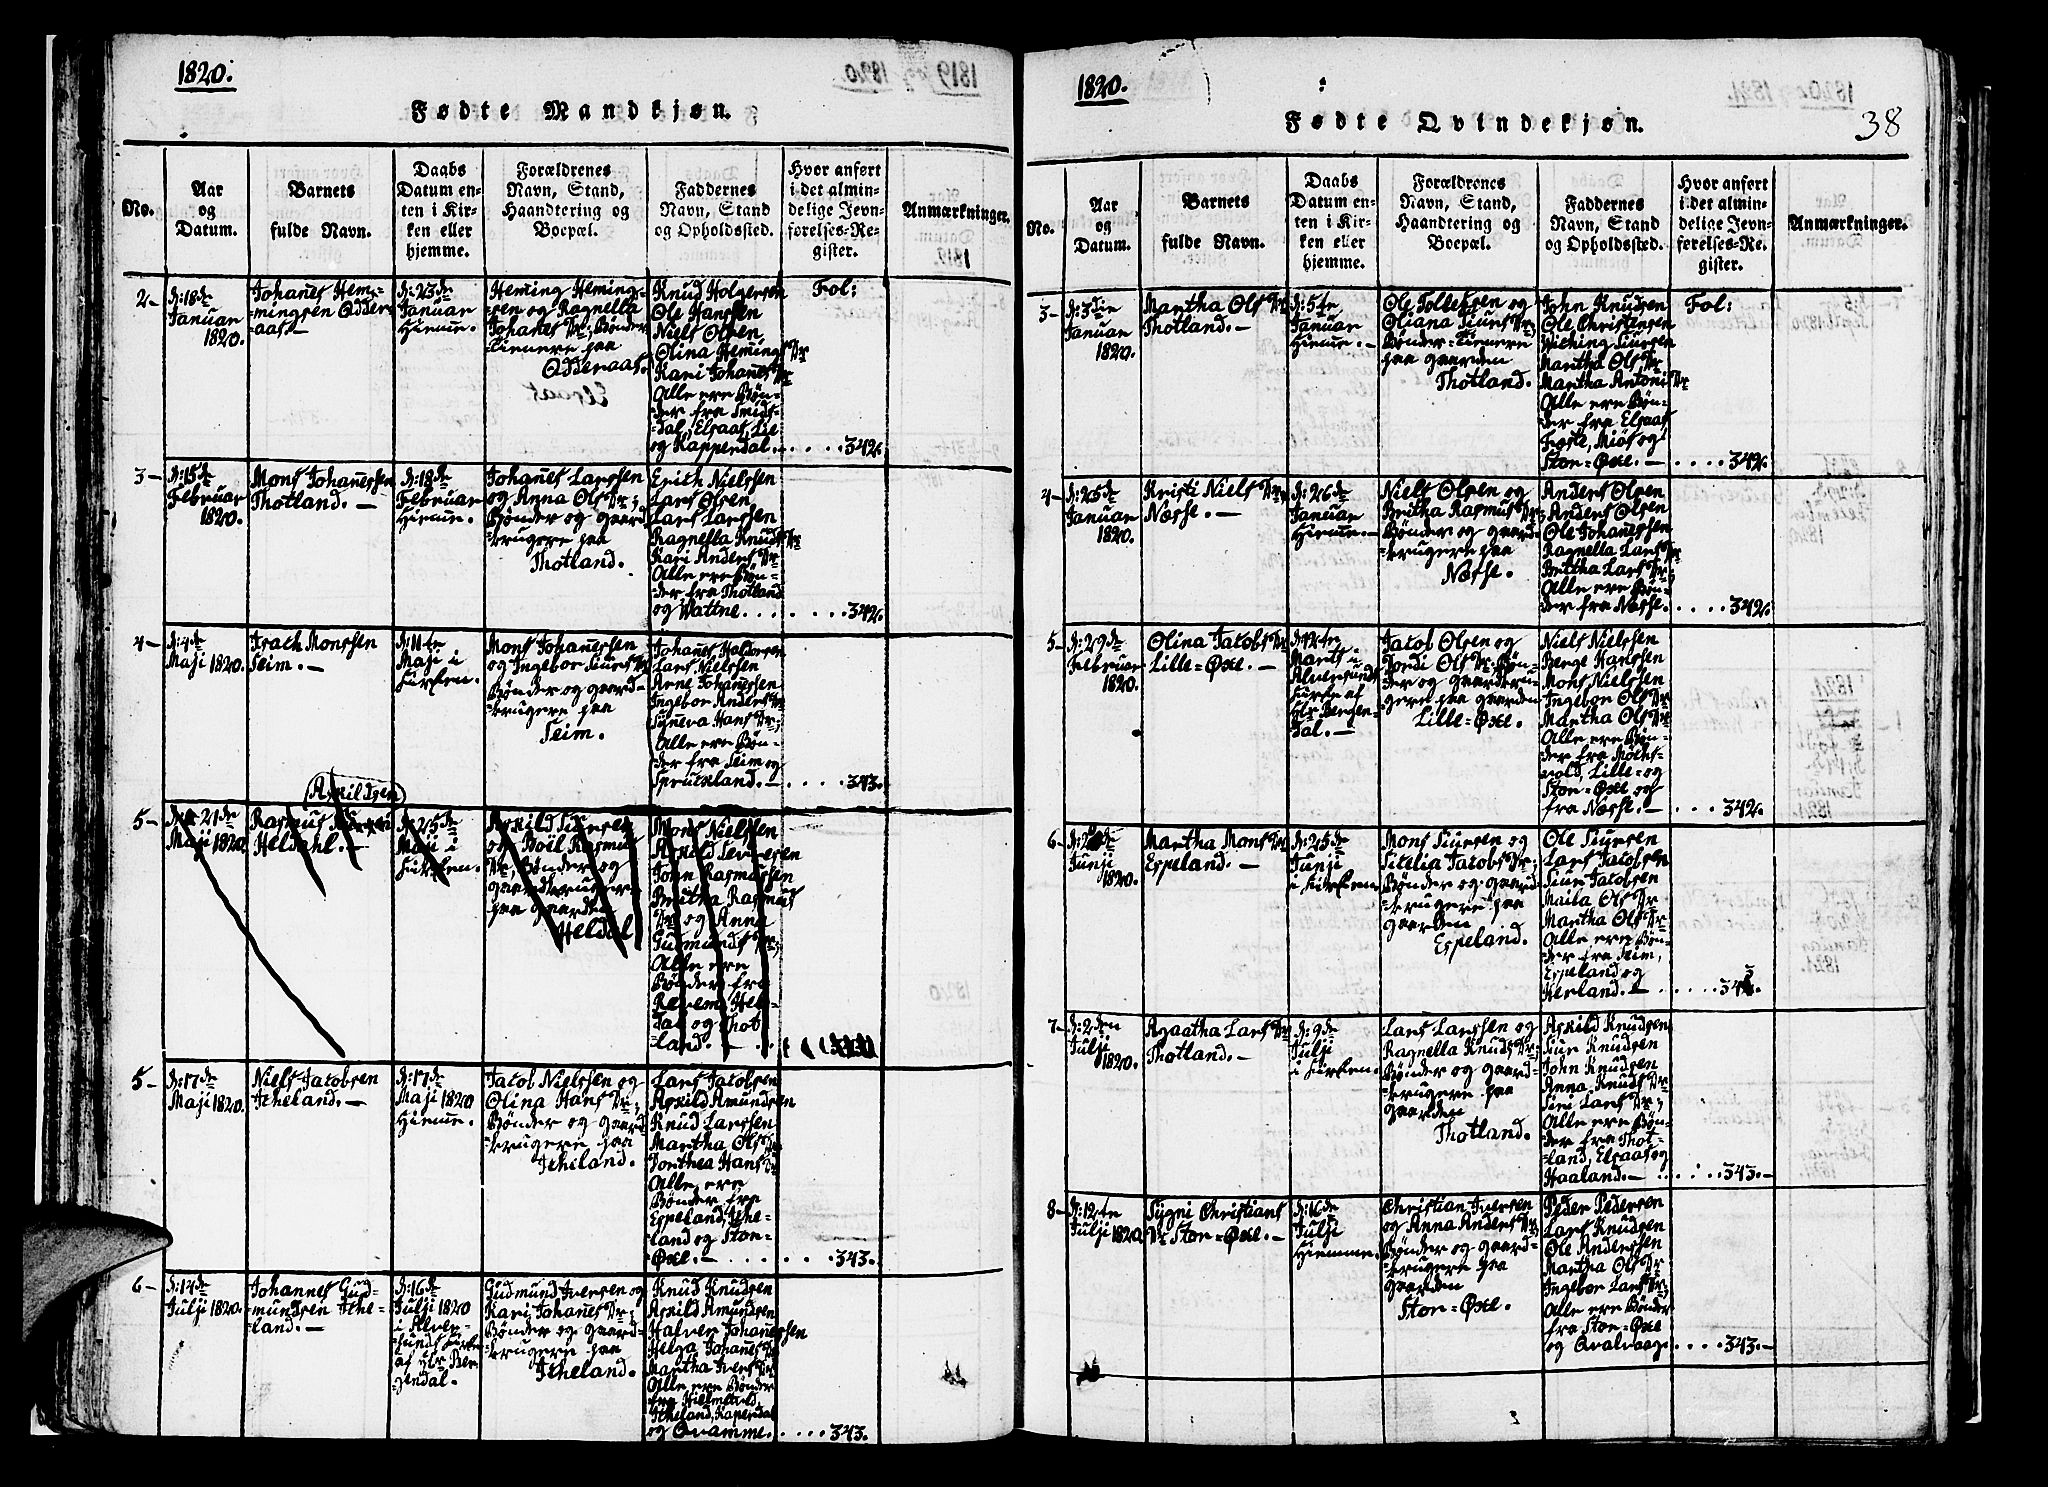 1820.
Fødte Mandkjøn.
No.
Aar
og
Datum.
Barnets
fulde Navn.
Daabs
Datum en-
ten i Kir-
ken eller
hjemme.
Forældrenes
Navn, Stand,
Haandtering og
Boepæl.
Faddernes
Navn, Stand
og Opholdssted.
Hvor anført
i det almin-
delige Jevn-
førelses-Re-
gister.
Anmærkninger.
2-
d: 18de
Januar
1820.
Johanes Hem-
mingsen Odder-
aas.-
d: 23de
Januar
Hiemme.
Heming Heming-
sen og Ragnella
Johanes Dr; Bønder
-Tienere paa
Odderaas.
Elsaas.
Knud Holgersen
Ole Hanssen
Niels Olsen
Olina Hemings Dr
Kari Johanes Dr
Alle ere Bøn-
der fra Smids-
dal, Elsaas, Lie
og Kapperdal.
Fol:
342.
3-
d: 15de
Februar
1820.
Mons Johanessen
Thotland.-
d: 18de
Februar
Hiemme.
Johanes Larssen
og Anna Ols Dr;
Bønder og gaard
-brugere paa
Thotland.
Erich Nielssen
Lars Olsen
Lars Larssen
Ragnella Knuds Dr
Kari Anders Dr
Alle ere Bøn-
der fra Thotland
og Wattne.
342.
4-
d: 4de
Maji 1820.
Isach Monssen
Seim.-
d: 11te
Maji i
Kirken.
Mons Johanessen
og Ingebor Siurs Dr
Bønder og gaard-
-brugere paa
Seim.
Johanes Haldorsen
Lars Nielssen
Arne Johanessen
Ingebor Anders Dr
Synneva Hans Dr;
Alle ere Bøn-
der fra Seim og
343.
5-
21de
Maji 1820.
Askildsen
Rasmus
Heldahl.-
d: 25de
Maji i
Kirken.
Askild Siursen
og Boël Rasmus
Dr, Bønder og
gaardbrugere
paa gaarden
Heldal
Mons Nielssen
Askild
John Rasmussen
Britha Rasmus
Dr og Anna
Gudmunds Dr;
Alle ere
Bønder fra
Hel-
dal og Thot
land.-
5-
d: 17de
Maji 1820.
Niels Jacobsen
Icheland.-
d: 17de
Maji 1820
Hiemme.
Jacob Nielssen og
Olina Hans Dr;
Bønder og gaard
-brugere paa
Icheland.
Lars Jacobsen
Askild Amundsen
Knud Larssen
Martha Ols Dr
Dorthea Hans Dr
Alle ere
Bønder fra
Espeland, Iche-
land og Stor-
Øxe.-
343.
6-
d: 14de
Julji 1820.
Johannes Gud-
mundsen Iche-
-land.-
d: 16de
Julji 1820
i Alver-
sunds Kirke
af Hr Ber
gendal.
Gudmund Iversen og
Kari Johanes Dr;
Bønder og gaard-
-brugere paa
Icheland.
Knud Knudsen
Askild Amundsen
Halver Johanessen
Helga Johanes Dr
Martha Ivers Dr
Alle ere Bønder
fra Hielmtveld,
Icheland, Kaperdal
og Qvamme.
343.
1820.
38
Fødte Qvindekjøn.
No.
Aar
og
Datum.
Barnets
fulde Navn.
Daabs
Datum en-
ten i Kir-
ken eller
hjemme.
Forældrenes
Navn, Stand,
Haandtering og
Boepæl.
Faddernes
Navn, Stand
og Opholdssted.
Hvor anført
i det almin-
delige Jevn-
førelses-Re-
gister.
Anmærkninger.
3-
d: 3die
Januar
1820.
Martha Ols Dr
Thotland.-
d: 5te
Januar
Hiemme.-
Ole Tollefsen og
Oliana Siurs Dr;
Bønder-Tienere
paa gaarden
Thotland.
John Knudsen
Ole Christensen
Wiching Siursen
Martha Ols Dr
Martha Antoni Dr
Alle ere Bøn-
der fra Elsaas
Feste, Miøs og
Stor-Øxe.-
Fol:
342.
4-
d: 25de
Januar
1820.
Kristi Niels Dr
Næsse.-
d: 26de
Januar
Hiemme.-
Niels Olsen og
Britha Rasmus Dr;
Bønder og gaard
-brugere paa
Næsse.
Anders Olsen
Anders Olsen
Ole Johanessen
Ragnella Lars Dr
Britha Lars Dr;
Alle ere Bøn-
der fra Næsse.
342.
5-
d: 29de
Februar
1820.
Olina Jacobs Dr
Lille-Øxe.-
d: 12te
Marts
i
Alversunds
Kirke af
Hr Bergen-
dal.-
Jacob Olsen og
Jordi Ols Dr; Bøn-
der og gaardbru-
gere paa gaarden
Lille-Øxe.
Niels Nielssen
Berge Hanssen
Mons Nielssen
Ingebor Ols Dr
Martha Ols Dr
Alle ere Bøn-
der fra Mochs-
vold, Lille- og
Stor-Øxe og
fra Næsse.-
342.
6-
Junji
1820.
Martha Mons Dr
Espeland.-
d: 25de
Junji
i Kirken.
Mons Siursen og
Sitelia Jacobs Dr;
Bønder og gaard
-brugere paa
gaarden
Espeland.
Ole Siursen
Lars Jacobsen
Siur Jacobsen
Maila Ols Dr
Martha Ols Dr
Alle ere Bøn-
der fra Seim,
Espeland og
Herland.-
343.
7-
d: 2den
Julji
1820.
Agaatha Lars Dr
Thotland.-
d: 9de
Julji
i Kirken.
Lars Larssen og
Ragnella Knuds Dr;
Bønder og gaard-
-brugere paa
gaarden
Thotland.
Askild Knudsen
Siur Knudsen
John Knudsen
Anna Knuds Dr
Siri Lars Dr;
Alle ere Bøn-
der fra Thot-
-land, Elsaas og
Haaland.-
343.-
8-
d: 12te
Julji 1820.
Sygni Christians
Dr Stor-Øxe.-
d: 16de
Julji
Hiemme.
Christian Iversen
og Anna Anders Dr;
Bønder og gaard-
-brugere paa
gaarden
Stor-Øxe.
Peder Pedersen
Lars Knudsen
Ole Anderssen
Martha Ols Dr
Ingebor Lars Dr;
Alle ere Bønder
fra Stor-Øxe
og Qvalvaage.
343.-